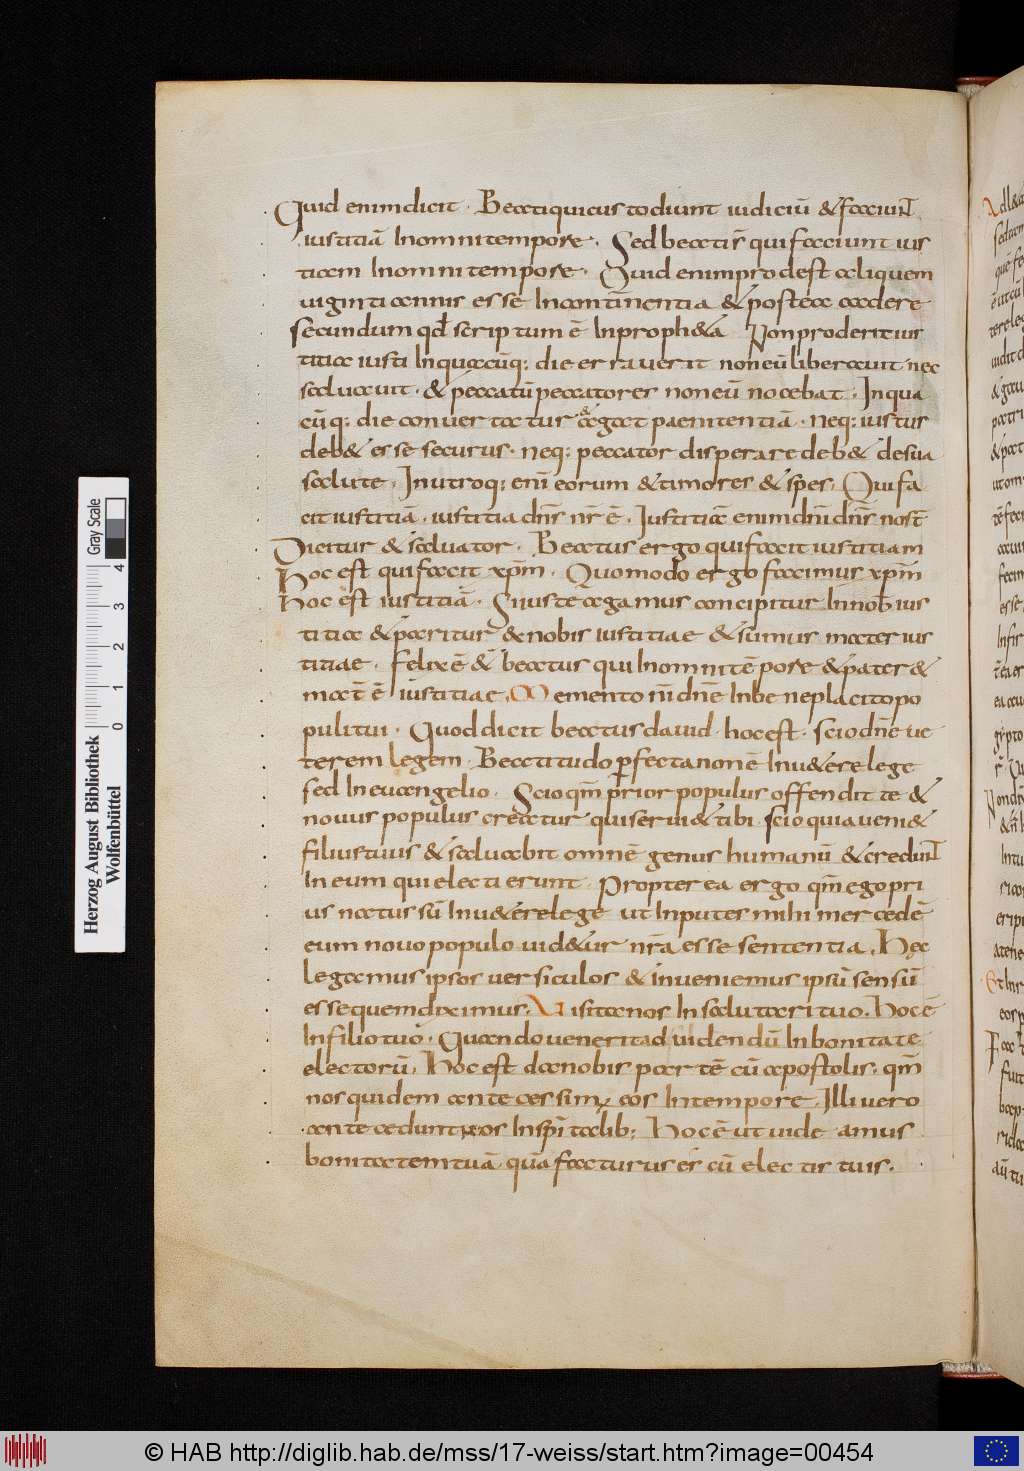 Quid enim dicit · Beati qui custodiunt iudiciū & faciunt
iustitiā Inomni tempore · Sed beati s̄ qui faciunt ius
titiam Inomni tempore · Quid enim prodest aliquem
viginti annis esse Incontinentia & postea cadere
secundum qđ scriptum ē Inproph&a Non proderit ius
titiae iusti Inquacūq: die erraverit non eū liberavit nec
saluavit · & peccatū peccatorer non eū nocebat · Inqua
cūq: die convertatur & agat paenitentiā · neq: iustus
deb& esse securus · neq: peccator disperare deb& desua
salute · Inutroq: enī eorum & timores & spes · Quifa
cit iustitiā · iustitia dn̄s nr̄ ē · Iustitia enim dn̄i dn̄s nost̄
Dicitur & saluator · Beatus ergo qui facit iustitiam
Hoc est qui facit xp̄m · Quomodo ergo facimus xp̄m
Hoc est iustitiā · Si iuste agamus concipitur Innob̄ ius
titia & paritur & nobis iustitiae & sumus mater ius
titiae · felix ē & beatus qui Inomni tēpore & pater &
mat̄ ē iustitiae · Memento n̄i dn̄e Inbeneplacito po
puli tui · Quod dicit beatus dauid · hoc est · scio dn̄e ve
terem legem · Beatitudo perfecta non ē Inu&ere lege
sed In euangelio · Scio qm̄ prior populus offendit te &
novus populus creatur qui seruí& tibi · scio quia veni&
filius tuus & saluabit omnē genus humanū & credunt
In eum qui electi erunt · Propterea ergo qm̄ ego pri
us natus sū Inu&ere lege ut Inputes mihi mercedē
eum novo populo uid&ur nr̄a esse sententia · Hęc
legamus ipsos versiculos & inveniemus ipsū sensū
esse quem diximus · Visita nos In salutari tuo · Hoc ē
In filio tuo · Quando venerit ad uidendū In bonitate
electorū · Hoc est da nobis partē cū apostolis · qm̄
nos quidem antecessimus eos Intempore · Illi vero
antecedunt nos Insp̄italib: Hoc ē ut videamus
bonitatem tuā quā facturus es cū electis tuis ·
Herzog August Bibliothek
Wolfenbüttel
0 1 2 3 4
Gray Scale
© HAB http://diglib.hab.de/mss/17-weiss/start.htm?image=00454